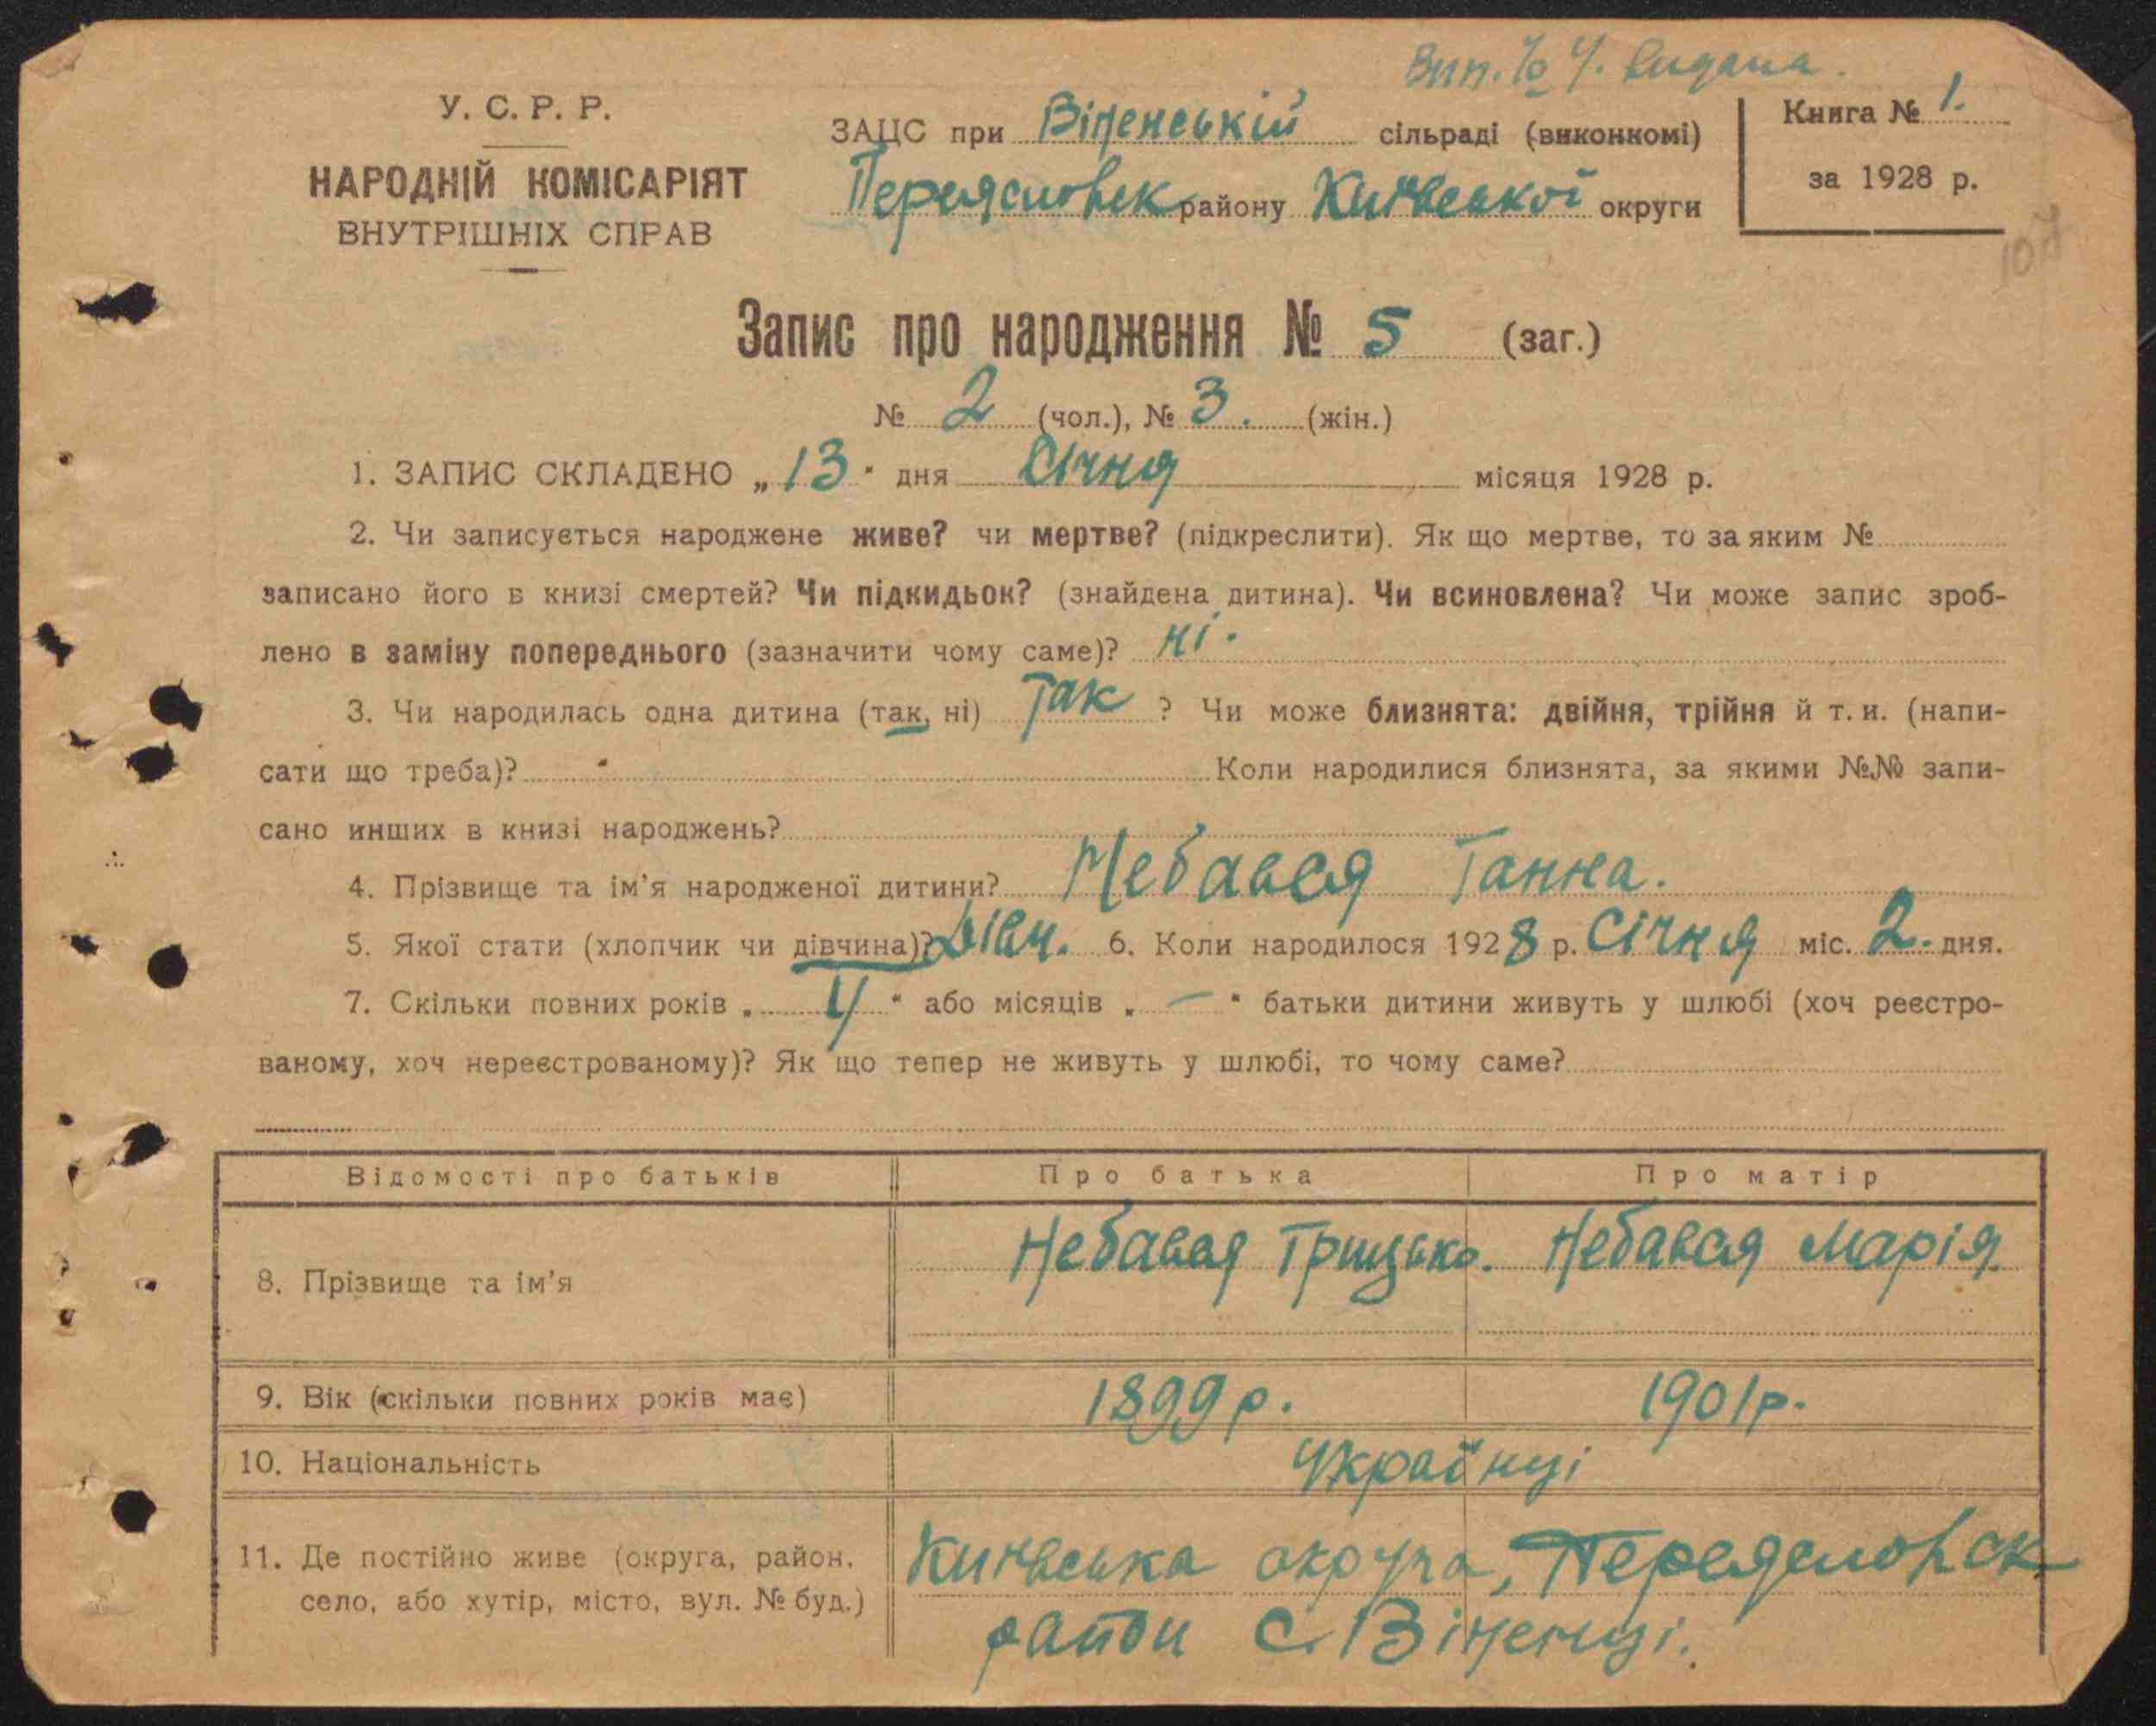 Вип. № 4. видана.
У. С. Р. Р.
НАРОДНІЙ КОМІСАРІЯТ
ВНУТРІШНІХ СПРАВ
ЗАЦС при Віненській сільраді (виконкомі)
Переясловск району Київської округи
Книга № 1.
за 1928 р.
107
Запис про народження № 5 (заг.)
№ 2 (чол.), № 3. (жін.)
1. ЗАПИС СКЛАДЕНО „13" дня Січня місяця 1928 р.
2. Чи записується народжене живе? чи мертве? (підкреслити). Як що мертве, то за яким №
записано його в книзі смертей? Чи підкидьок? (знайдена дитина). Чи всиновлена? Чи може запис зроб-
лено в заміну попереднього (зазначити чому саме)? ні.
3. Чи народилась одна дитина (так, ні) Так ? Чи може близнята: двійня, трійня й т. и. (напи-
сати що треба)? Коли народилися близнята, за якими №№ запи-
сано инших в книзі народжень?
4. Прізвище та ім'я народженої дитини? Небався Ганна.
5. Якої стати (хлопчик чи дівчина)? Дівч. 6. Коли народилося 1928 р. Січня міс. 2. дня.
7. Скільки повних років „ 4 " або місяців „ — " батьки дитини живуть у шлюбі (хоч реєстро-
ваному, хоч нереєстрованому)? Як що тепер не живуть у шлюбі, то чому саме?
Відомості про батьків Про батька Про матір
8. Прізвище та ім'я Небався Грицько. Небався Марія.
9. Вік (скільки повних років має) 1899 р. 1901 р.
10. Національність Українці
11. Де постійно живе (округа, район, село, або хутір, місто, вул. № буд.) Київська округа, Переясловск
район С. Віненці.